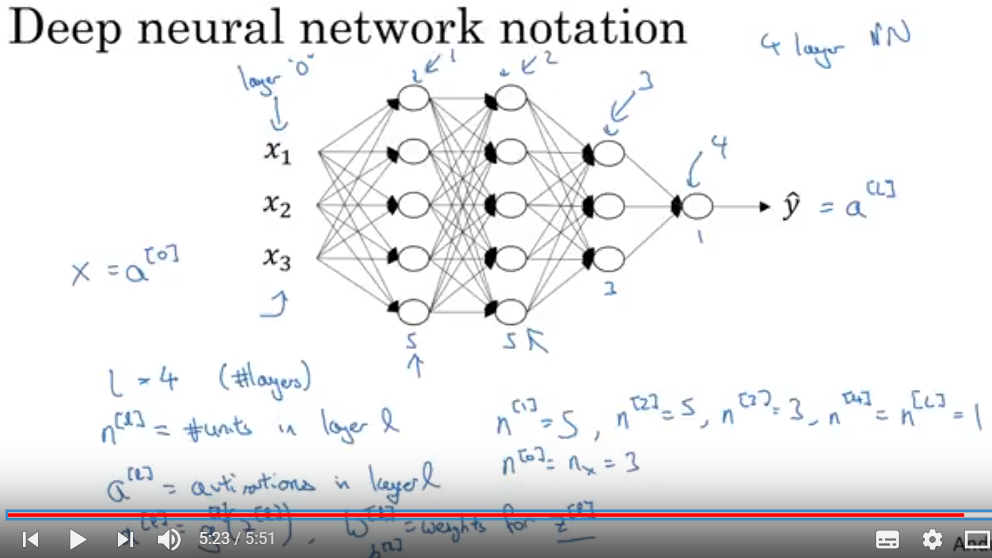 Deep neural network notation
4 layer NN
layer "0"
1
2
3
4
x₁
x₂
x₃
ŷ = a^[L]
X = a^[0]
5
5
3
1
L = 4 (#layers)
n^[l] = #units in layer l
n^[1] = 5, n^[2] = 5, n^[3] = 3, n^[4] = n^[L] = 1
n^[0] = n_x = 3
a^[l] = activations in layer l
a^[l] = g^[l](z^[l]), W^[l] = weights for z^[l]
b^[l]
5:23 / 5:51